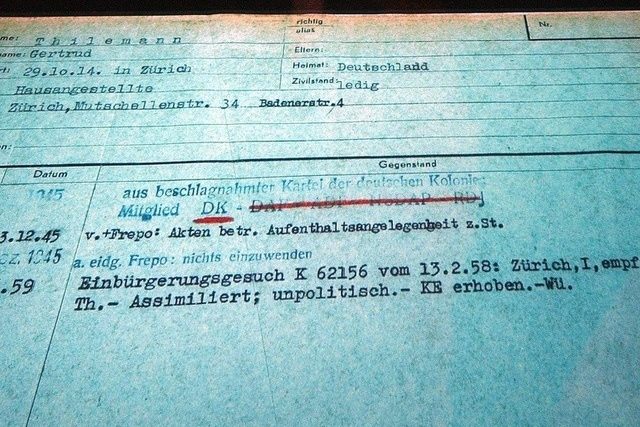 richtig
alias
Nr.
me: Thilemann
ame: Gertrud
Eltern:
29.10.14. in Zürich
Heimat: Deutschland
Hausangestellte
Zivilstand: ledig
Zürich, Mutschellenstr. 34 Badenerstr.4
en:
Datum Gegenstand
1945 aus beschlagnahmter Kartei der deutschen Kolonie:
Mitglied DK - DAF - ADF - NSDAP - RDJ
3.12.45 v.+Frepo: Akten betr. Aufenthaltsangelegenheit z.St.
ez. 1945 a. eidg. Frepo: nichts einzuwenden
.59 Einbürgerungsgesuch K 62156 vom 13.2.58: Zürich,I,empf
Th.- Assimiliert; unpolitisch.- KE erhoben.-Wü.